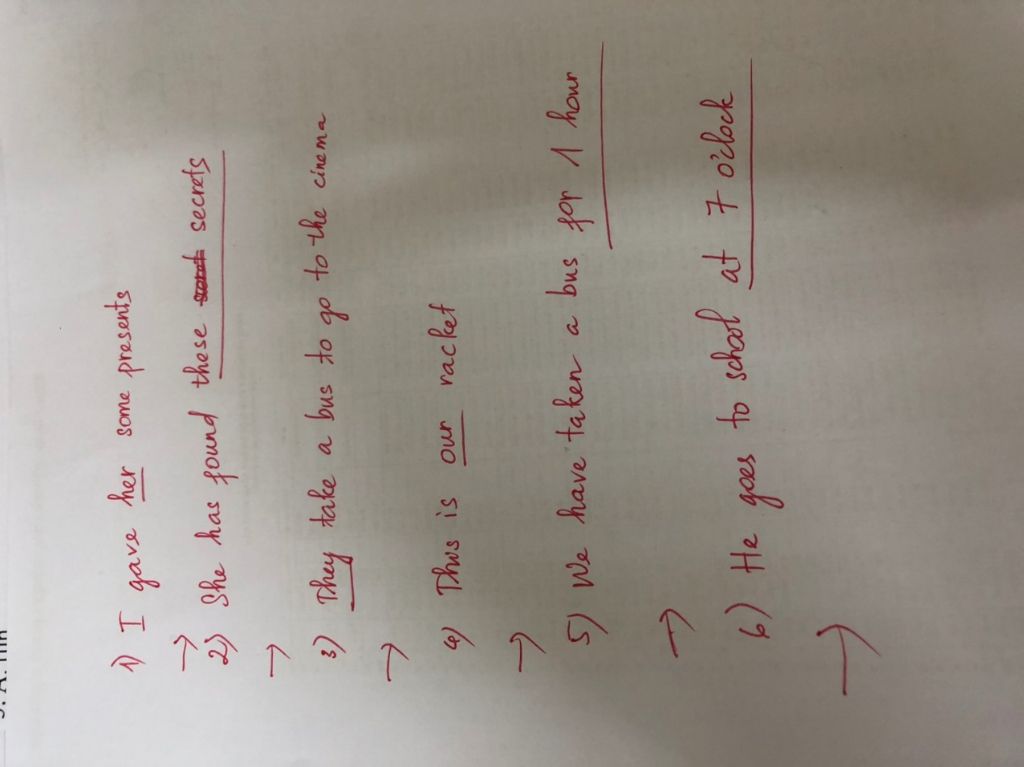 1) I gave her some presents
→
2) She has found these secrets
→
3) They take a bus to go to the cinema
→
4) Thus is our racket
→
5) We have taken a bus for 1 hour
→
6) He goes to school at 7 o'clock
→